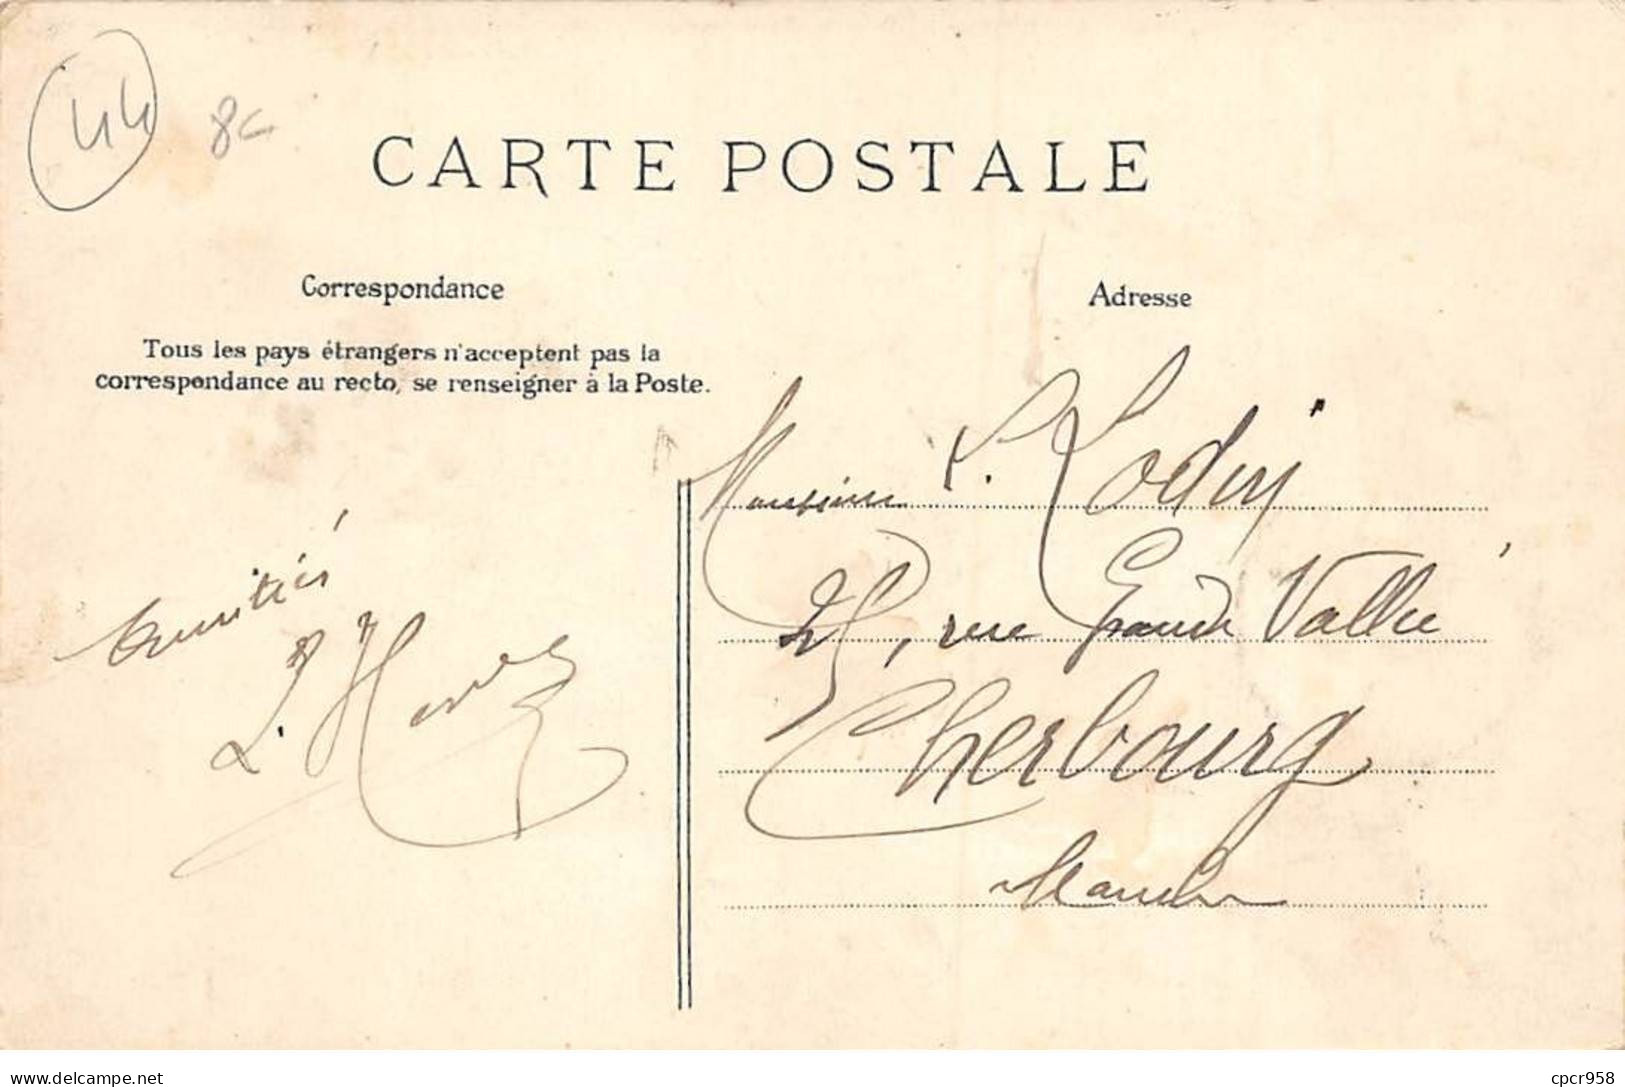 44
8c
CARTE POSTALE
Correspondance
Tous les pays étrangers n'acceptent pas la
correspondance au recto, se renseigner à la Poste.
Amitiés
Adresse
Monsieur
rue Grande Vallée
Cherbourg
Manche
delcampe.net
cpcr958